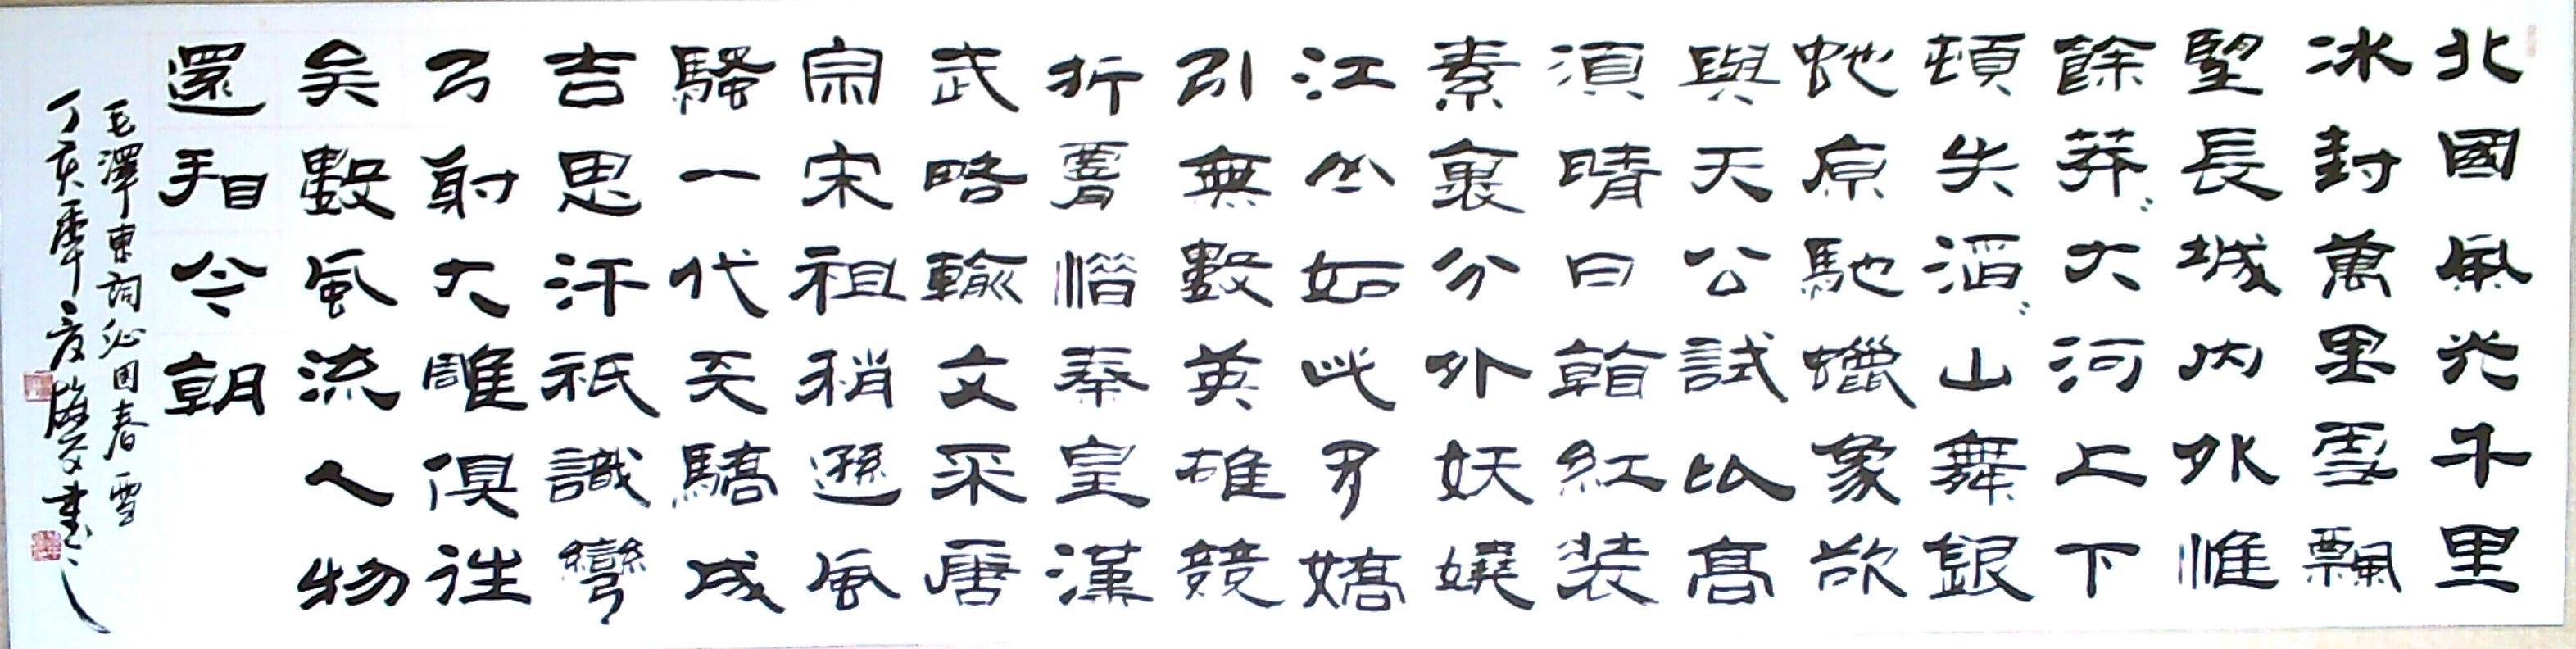 北國風光千里
冰封萬里雪飄
望長城內外惟
餘莽〻大河上下
頓失滔〻山舞銀
蛇原馳蠟象欲
與天公試比高
須晴日看紅裝
素裹分外妖嬈
江山如此多嬌
引無數英雄競
折腰惜秦皇漢
武略輸文采唐
宗宋祖稍遜風
騷一代天驕成
吉思汗祇識彎
弓射大雕俱往
矣數風流人物
還看今朝
毛澤東詞沁園春雪
丁亥 書